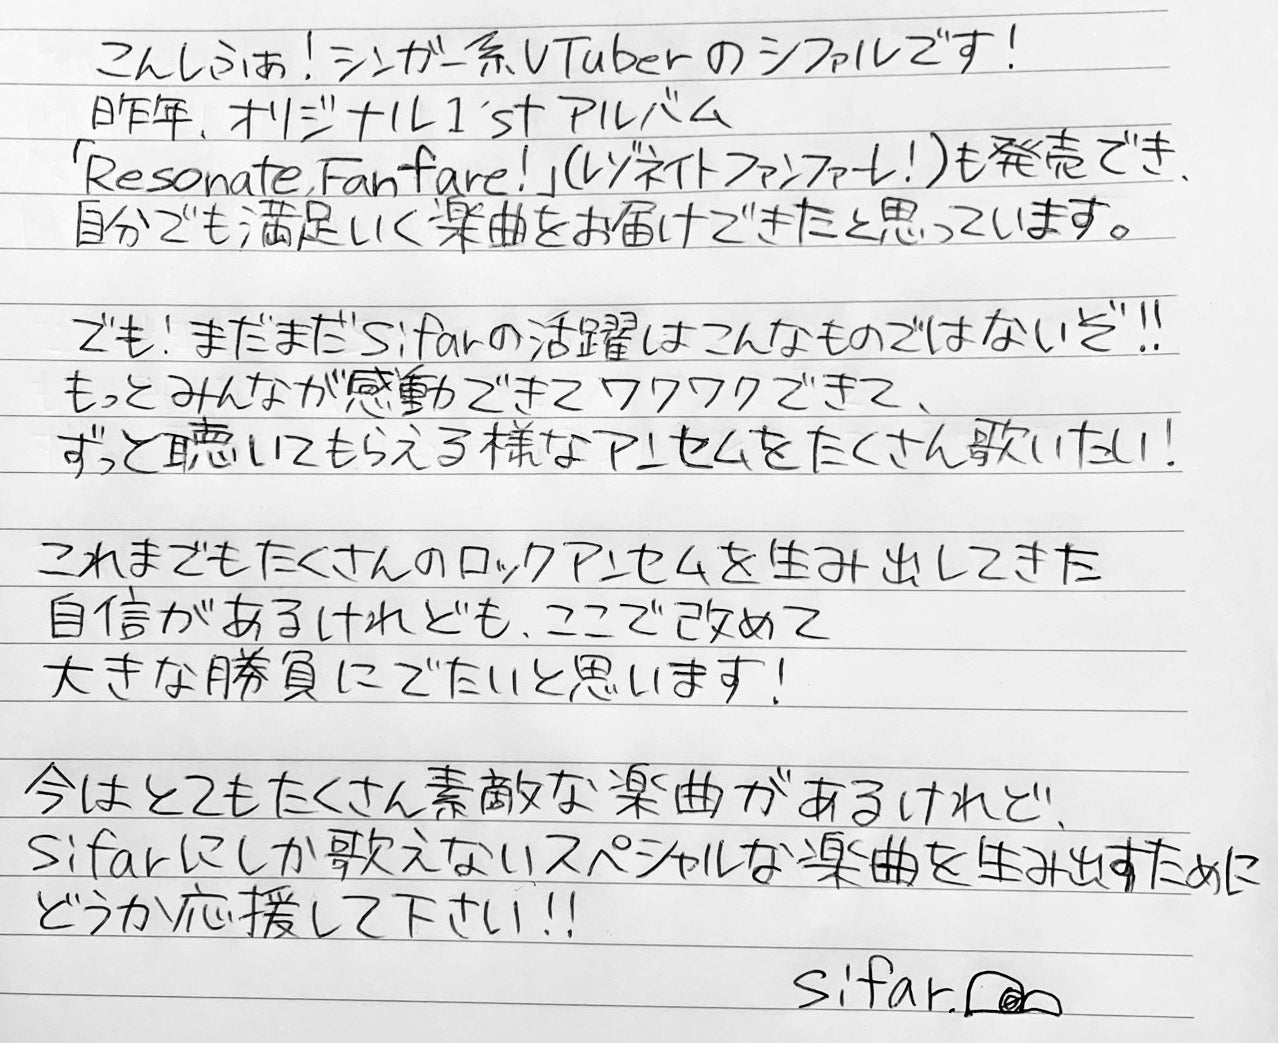 こんしふぁ！シンガー系VTuberのシファルです！
昨年、オリジナル1'stアルバム
「Resonate Fanfare！」(レゾネイトファンファーレ！)も発売でき、
自分でも満足いく楽曲をお届けできたと思っています。
でも！まだまだsifarの活躍はこんなものではないぞ!!
もっとみんなが感動できてワクワクできて、
ずっと聴いてもらえる様なアンセムをたくさん歌いたい！
これまでもたくさんのロックアンセムを生み出してきた
自信があるけれども、ここで改めて
大きな勝負にでたいと思います！
今はとてもたくさん素敵な楽曲があるけれど、
sifarにしか歌えないスペシャルな楽曲を生み出すために
どうか応援して下さい!!
sifar.